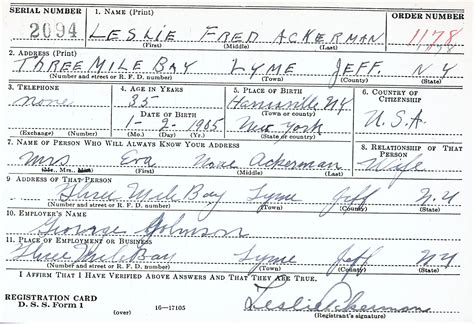 SERIAL NUMBER 1. NAME (Print) ORDER NUMBER
2694 LESLIE FRED ACKERMAN 1178
(First) (Middle) (Last)
2. ADDRESS (Print)
THREE MILE BAY LYME JEFF. N Y
(Number and street or R. F. D. number) (Town) (County) (State)
3. TELEPHONE 4. AGE IN YEARS 5. PLACE OF BIRTH 6. COUNTRY OF CITIZENSHIP
None 35 N.Y.
(Town or county)
DATE OF BIRTH
1-2-1905 New York U.S.A.
(Exchange) (Number) (Mo.) (Day) (Yr.) (State or country)
7. NAME OF PERSON WHO WILL ALWAYS KNOW YOUR ADDRESS 8. RELATIONSHIP OF THAT PERSON
Mrs. Eva None Ackerman Wife
(Mr., Mrs., Miss) (First) (Middle) (Last)
9. ADDRESS OF THAT PERSON
Three Mile Bay Lyme Jeff N.Y
(Number and street or R. F. D. number) (Town) (County) (State)
10. EMPLOYER'S NAME
George Johnson
11. PLACE OF EMPLOYMENT OR BUSINESS
Three Mile Bay Lyme Jeff N Y
(Number and street or R. F. D. number) (Town) (County) (State)
I AFFIRM THAT I HAVE VERIFIED ABOVE ANSWERS AND THAT THEY ARE TRUE.
REGISTRATION CARD
D. S. S. Form 1 (over) 16—17105 Leslie Ackerman
(Registrant's signature)